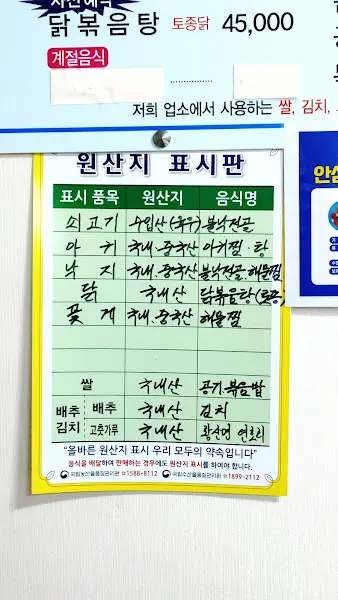 사전예약
닭볶음탕 토종닭 45,000
계절음식
저희 업소에서 사용하는 쌀, 김치,
원산지 표시판
표시 품목 원산지 음식명
쇠고기 수입산(육우) 불낙전골
아귀 국내.중국산 아귀찜.탕
낙지 국내.중국산 불낙전골.해물찜
닭 국내산 닭볶음탕(토종)
꽃게 국내.중국산 해물찜
쌀 국내산 공기.볶음밥
배추김치 배추 국내산 김치
고춧가루 국내산
"올바른 원산지 표시 우리 모두의 약속입니다"
음식을 배달하여 판매하는 경우에도 원산지 표시를 하여야 합니다.
국립농산물품질관리원 ☎1588-8112 국립수산물품질관리원 ☎1899-2112